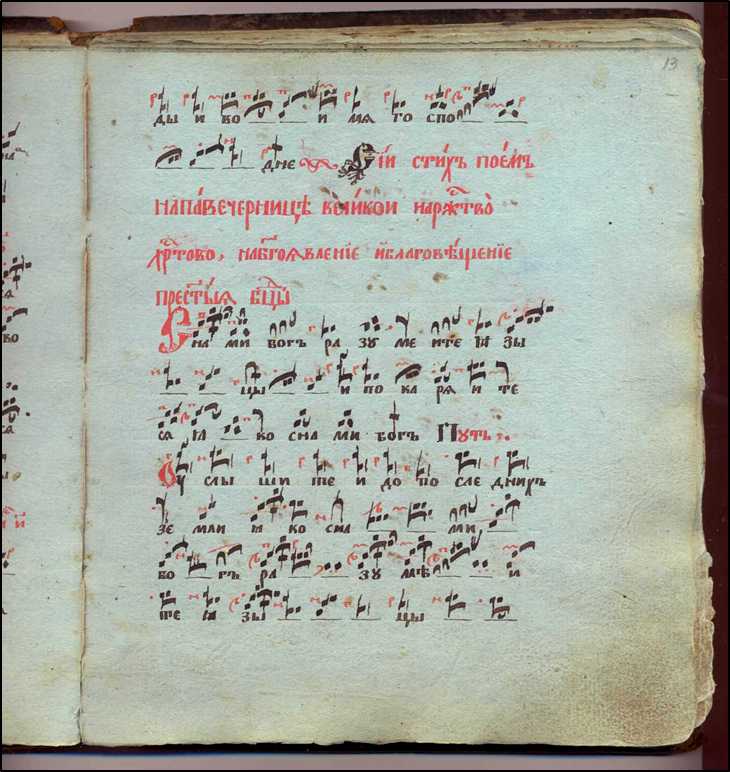 13
ды и во и мя го спо
дне Сїи стихъ поемъ
напавечерницѣ великои нарж҃тво
хр҃тово, набг҃оявленїе иблаговѣщенїе
прест҃ыя бц҃ы
Снами богъ ра зу ме ите ꙗзы
цы и по ка ря и те
ся ꙗ ко снами богъ Путь.
Оу слы ши те и до по сле днихъ
зе мли ꙗ ко сна ми
бо гъ ра зу мѣ и
те ꙗ зы цы